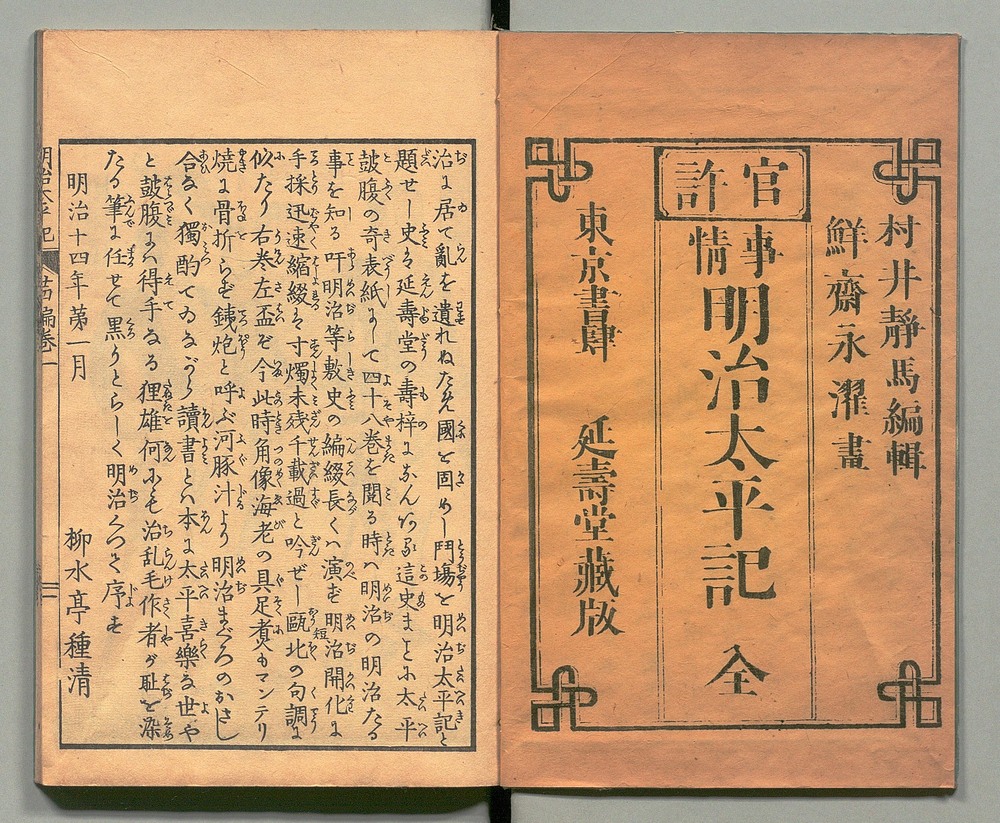 官許
村井靜馬編輯
鮮齋永濯畫
事情
明治太平記 全
東京書肆 延壽堂藏版
治に居て亂を遺れねため國を固めし鬥場を明治太平記と
題せし史は延壽堂の壽梓になんいる這史まことに太平
鼓腹の奇表紙にして四十八巻を閲る時ハ明治の明治たる
事を知る吁明治等敷史の編綴長くハ演ず明治開化に
手採迅速縮綴も寸燭未残千載過と吟ぜし甌北の句調に
似たり右巻左盃ぞ今此時角像海老の具足煮もマンテリ
燒に骨折らず銕炮と呼ぶ河豚汁より明治まぐろのかさし
合なく獨酌でゐながら讀書とハ本に太平喜樂な世や
と鼓腹にハ得手なる狸雄何にも治乱毛作者が耻を染
たる筆に任せて黒うとらしく明治につきて序す
明治十四年第一月
柳水亭種清
明治太平記